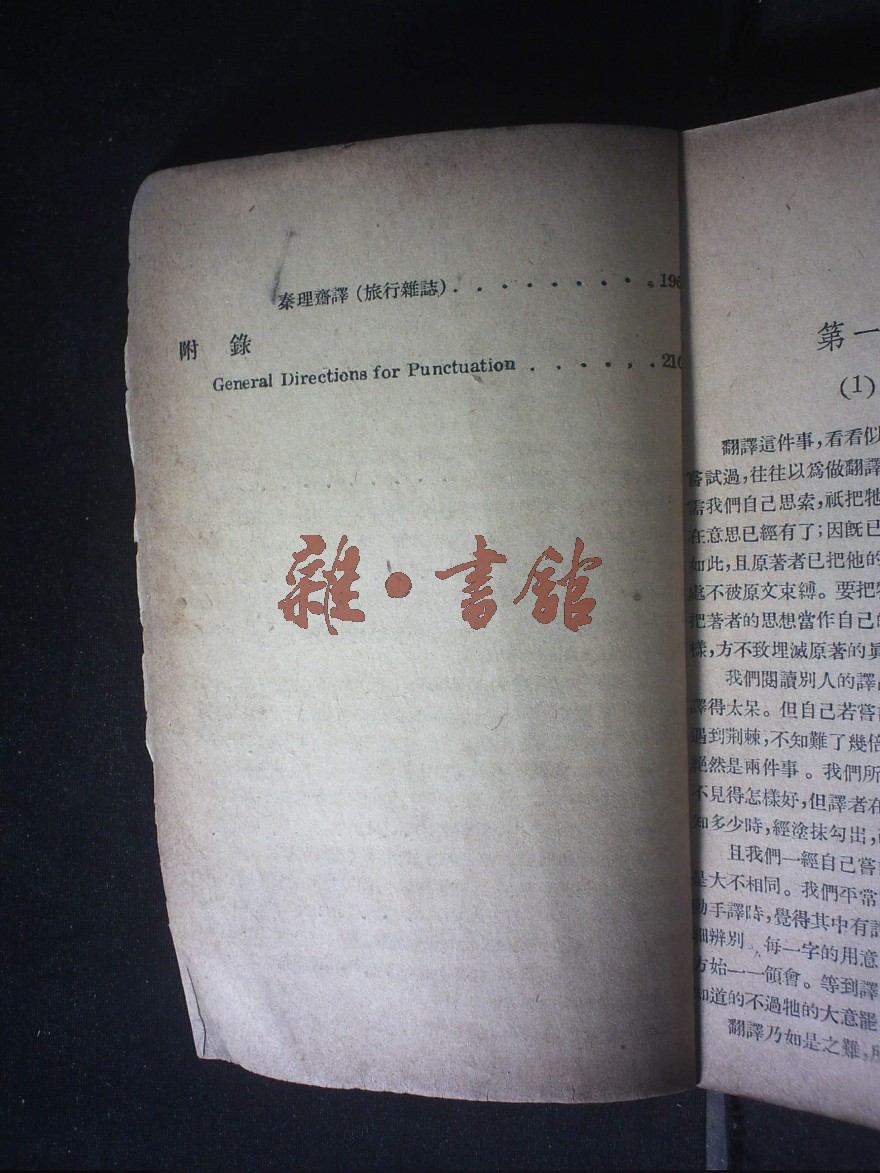 秦理齋譯(旅行雜誌). . . . . . . . . . . 196
附 錄
General Directions for Punctuation . . . . . . . 210
雜•書館
第一
(1)
翻譯這件事,看看似
嘗試過,往往以爲做翻譯
需我們自己思索,祇把牠
在意思已經有了;因旣已
如此,且原著者已把他的
不被原文束縛。要把
把著者的思想當作自己的
樣,方不致埋滅原著的眞
我們閱讀別人的譯
譯得太呆。但自己若嘗
遇到荆棘,不知難了幾倍
然是兩件事。我們所
不見得怎樣好,但譯者在
知多少時,經塗抹勾出,
且我們一經自己嘗
是大不相同。我們平常
動手譯時,覺得其中有
細辨別,每一字的用意
方始一一領會。等到譯
知道的不過牠的大意罷
翻譯乃如是之難,